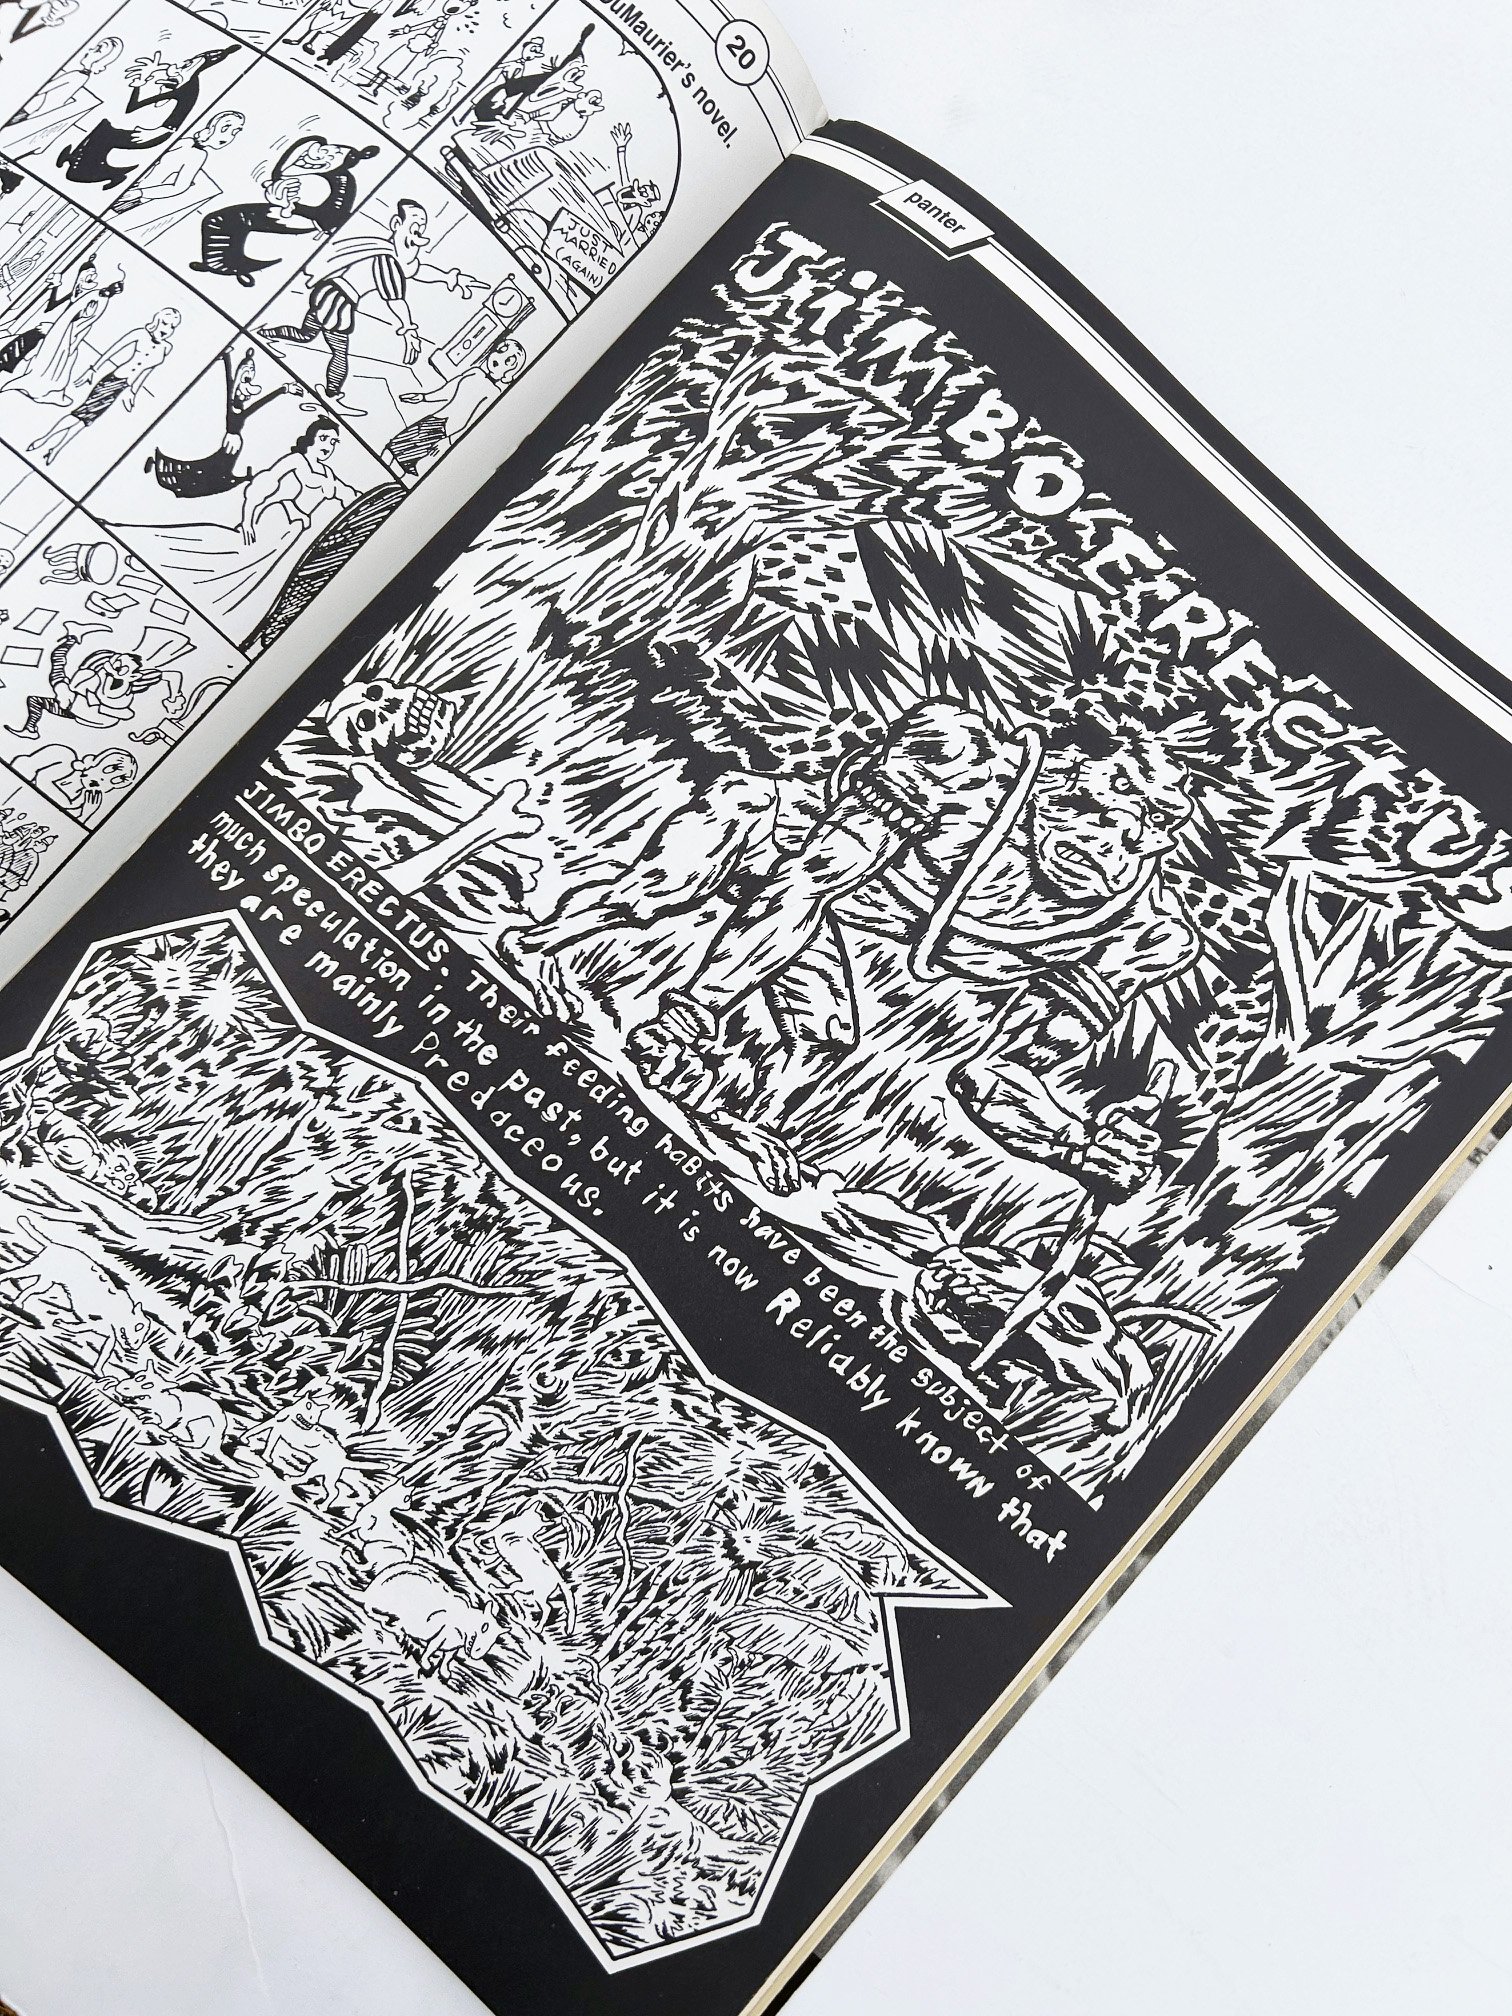 DuMaurier's novel.
20
JUST
MARRIED
(AGAIN)
panter
JIMBO ERECTUS
JIMBO ERECTUS. Their feeding habits have been the subject of
much speculation in the past, but it is now Reliably known that
they are mainly Predaceous.